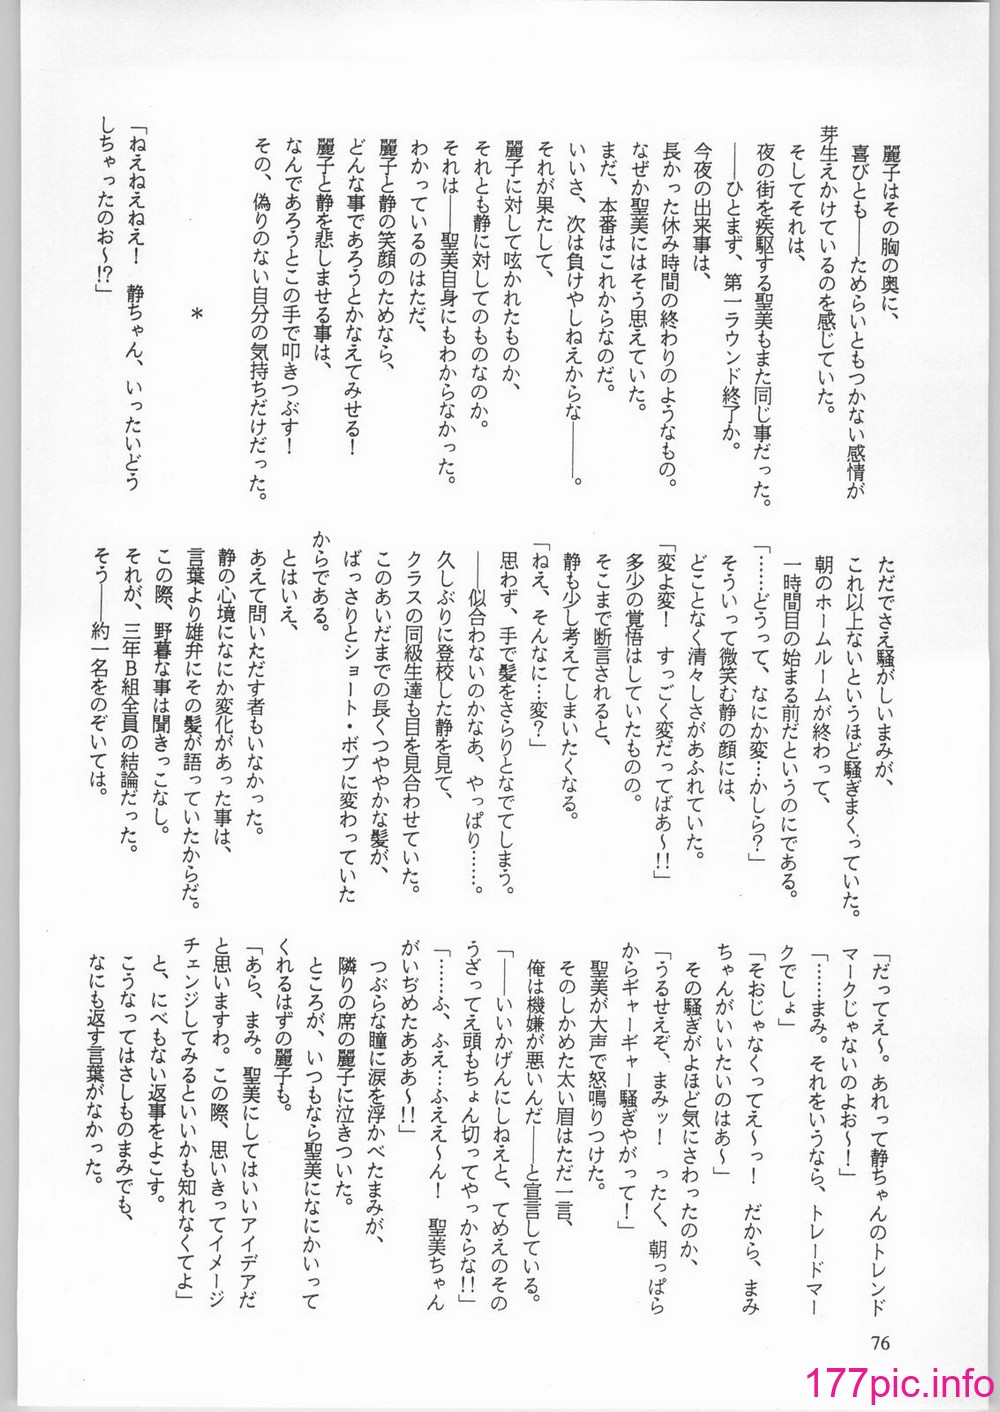 麗子はその胸の奥に、
喜びとも――ためらいともつかない感情が
芽生えかけているのを感じていた。
そしてそれは、
夜の街を疾駆する聖美もまた同じ事だった。
――ひとまず、第一ラウンド終了か。
今夜の出来事は、
長かった休み時間の終わりのようなもの。
なぜか聖美にはそう思えていた。
まだ、本番はこれからなのだ。
いいさ、次は負けやしねえからな――。
それが果たして、
麗子に対して呟かれたものか、
それとも静に対してのものなのか。
それは――聖美自身にもわからなかった。
わかっているのはただ、
麗子と静の笑顔のためなら、
どんな事であろうとかなえてみせる！
麗子と静を悲しませる事は、
なんであろうとこの手で叩きつぶす！
その、偽りのない自分の気持ちだけだった。
＊
「ねえねえねえ！　静ちゃん、いったいどう
しちゃったのお～!?」
ただでさえ騒がしいまみが、
これ以上ないというほど騒ぎまくっていた。
朝のホームルームが終わって、
一時間目の始まる前だというのにである。
「……どうって、なにか変…かしら？」
そういって微笑む静の顔には、
どことなく清々しさがあふれていた。
「変よ変！　すっごく変だってばあ～!!」
多少の覚悟はしていたものの。
そこまで断言されると、
静も少し考えてしまいたくなる。
「ねえ、そんなに…変？」
思わず、手で髪をさらりとなでてしまう。
――似合わないのかなあ、やっぱり……。
久しぶりに登校した静を見て、
クラスの同級生達も目を見合わせていた。
このあいだまでの長くつややかな髪が、
ばっさりとショート・ボブに変わっていた
からである。
とはいえ、
あえて問いただす者もいなかった。
静の心境になにか変化があった事は、
言葉より雄弁にその髪が語っていたからだ。
この際、野暮な事は聞きっこなし。
それが、三年Ｂ組全員の結論だった。
そう――約一名をのぞいては。
「だってえ～。あれって静ちゃんのトレンド
マークじゃないのよお～！」
「……まみ。それをいうなら、トレードマー
クでしょ」
「そおじゃなくってえ～っ！　だから、まみ
ちゃんがいいたいのはあ～」
その騒ぎがよほど気にさわったのか、
「うるせえぞ、まみッ！　ったく、朝っぱら
からギャーギャー騒ぎやがって！」
聖美が大声で怒鳴りつけた。
そのしかめた太い眉はただ一言、
俺は機嫌が悪いんだ――と宣言している。
「――いいかげんにしねえと、てめえのその
うざってえ頭もちょん切ってやっからな!!」
「……ふ、ふえ…ふええ～ん！　聖美ちゃん
がいぢめたあああ～!!」
つぶらな瞳に涙を浮かべたまみが、
隣りの席の麗子に泣きついた。
ところが、いつもなら聖美になにかいって
くれるはずの麗子も。
「あら、まみ。聖美にしてはいいアイデアだ
と思いますわ。この際、思いきってイメージ
チェンジしてみるといいかも知れなくてよ」
と、にべもない返事をよこす。
こうなってはさしものまみでも、
なにも返す言葉がなかった。
76
177pic.info